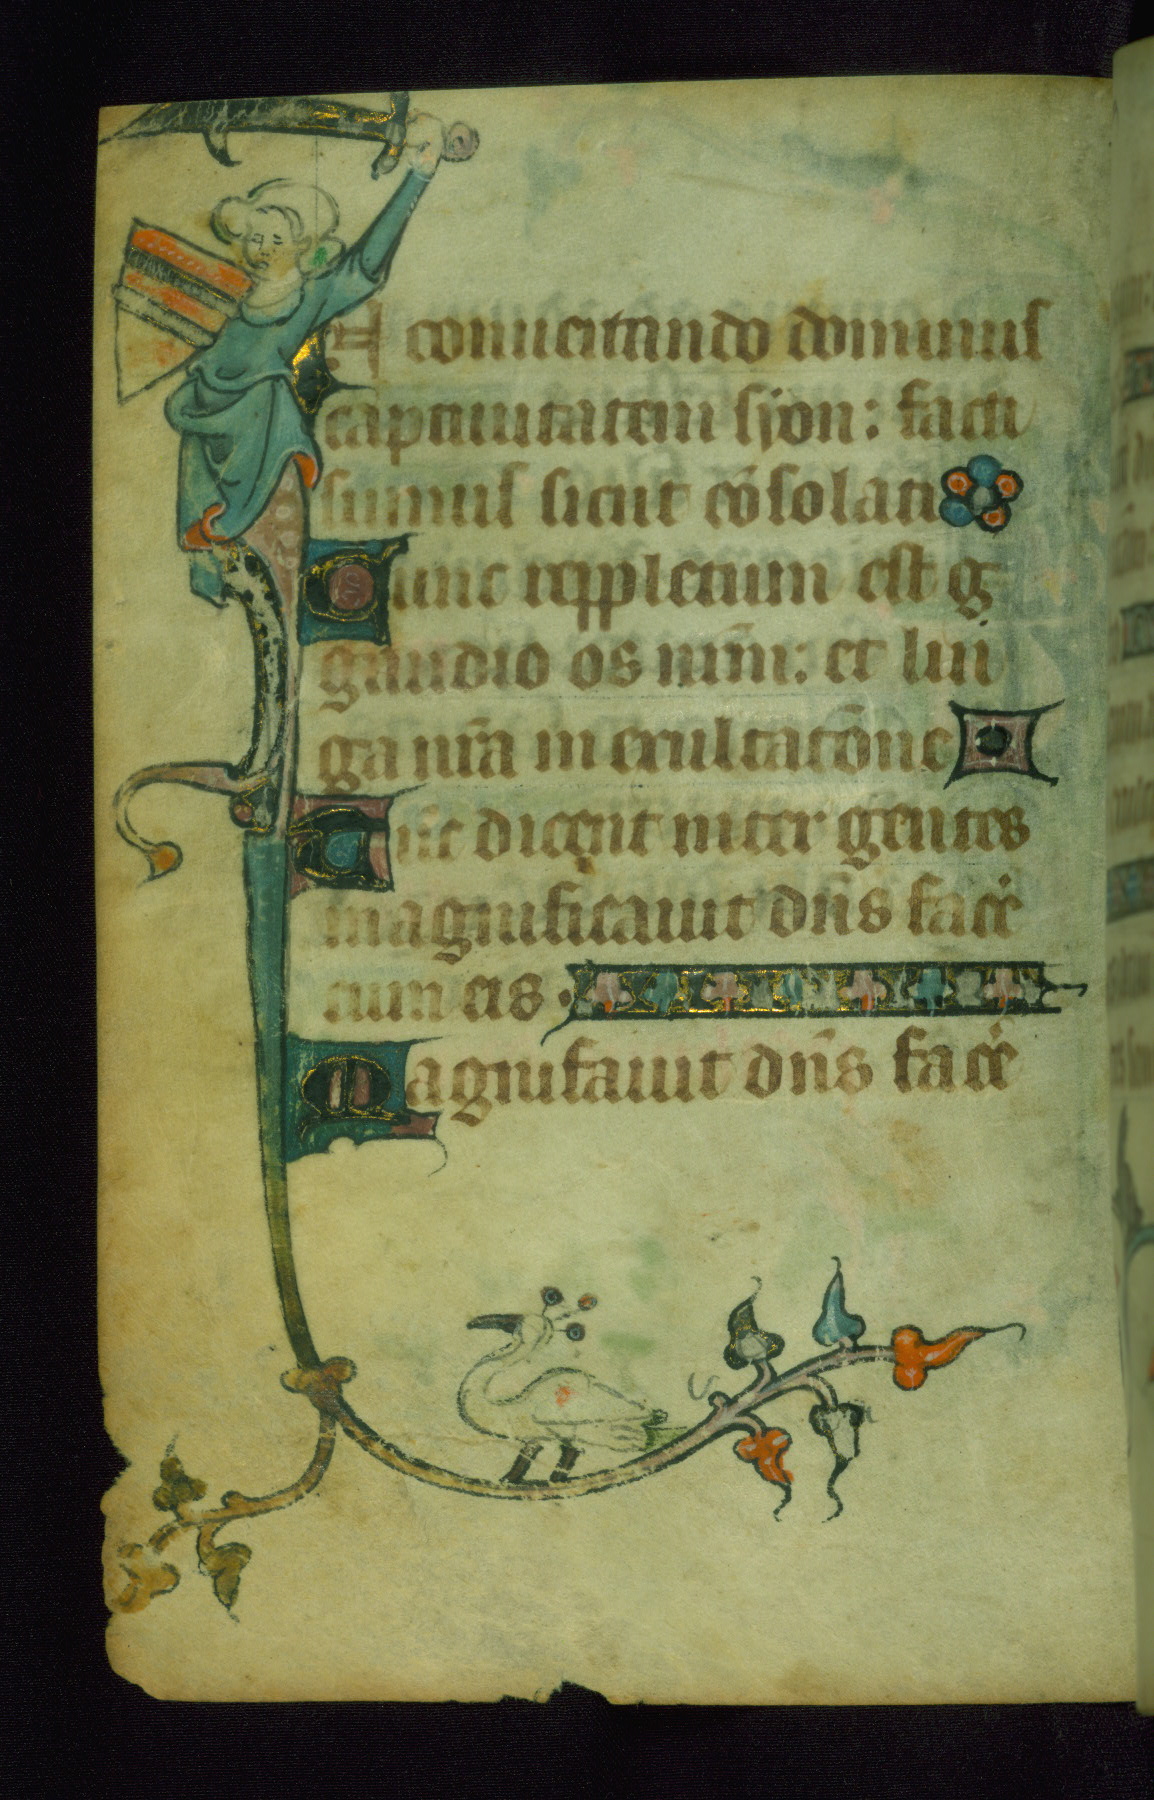 A conuertando dominus
captiuitatem syon: facti
sumus sicut cōsolati
Tunc reppletum est g
gaudio os nr̄m: et lin
ga nr̄a in exultatōne
Tūc dicent niter gentes
magnificauit dn̄s facē
cum eis.
Magnifauit dn̄s facē